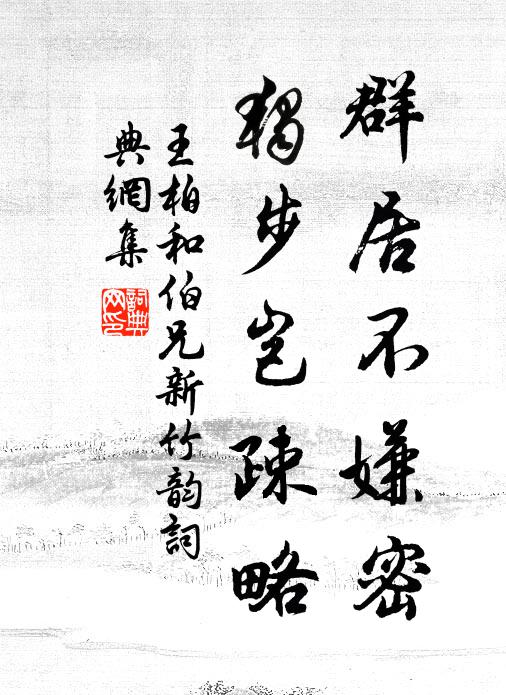 群居不嫌密
獨步岂疎略
王柏和伯兄新竹韵詞
典網集
詞典
网印